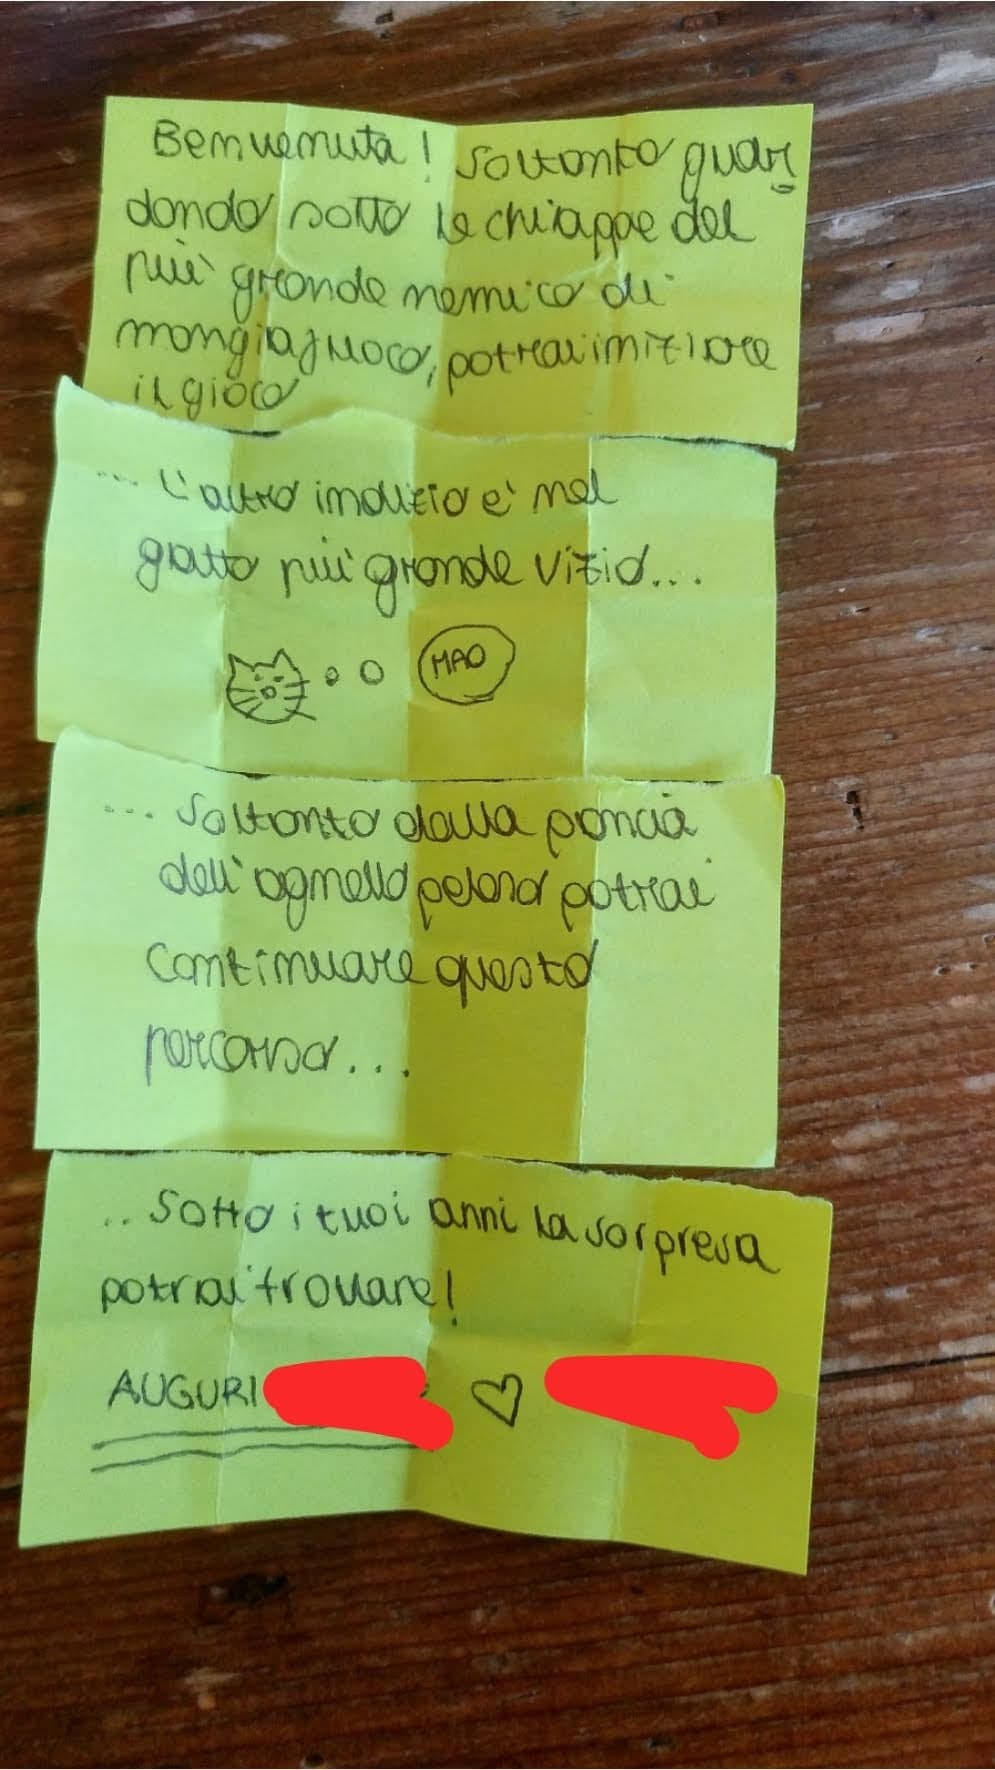 Benvenuta! Soltanto guar
dando sotto le chiappe del
più grande nemico di
mangiafuoco, potrai iniziare
il gioco
... L'altro indizio è nel
gatto più grande vizio...
MAO
... Soltanto dalla pancia
dell'agnello peloso potrai
continuare questo
percorso...
.. Sotto i tuoi anni la sorpresa
potrai trovare!
AUGURI